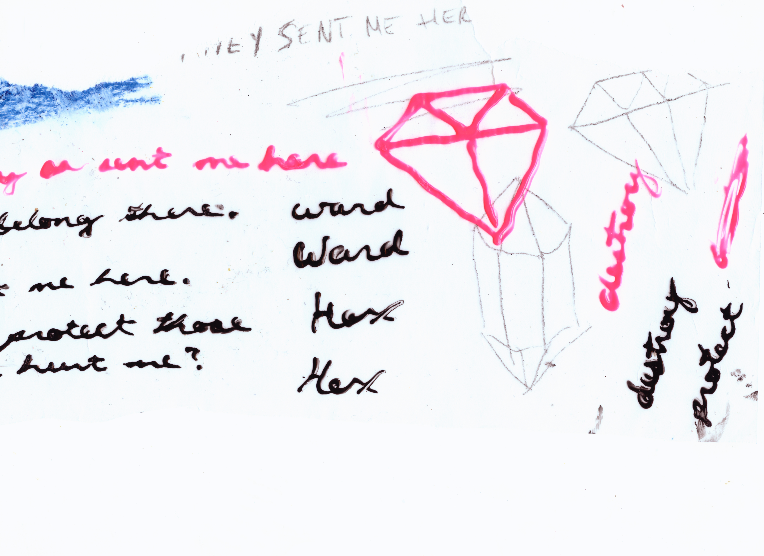 SENT ME HER
sent me here
belong there.
ward
Ward
me here.
protect those
Hex
hurt me?
Hex
destroy
destroy
protect